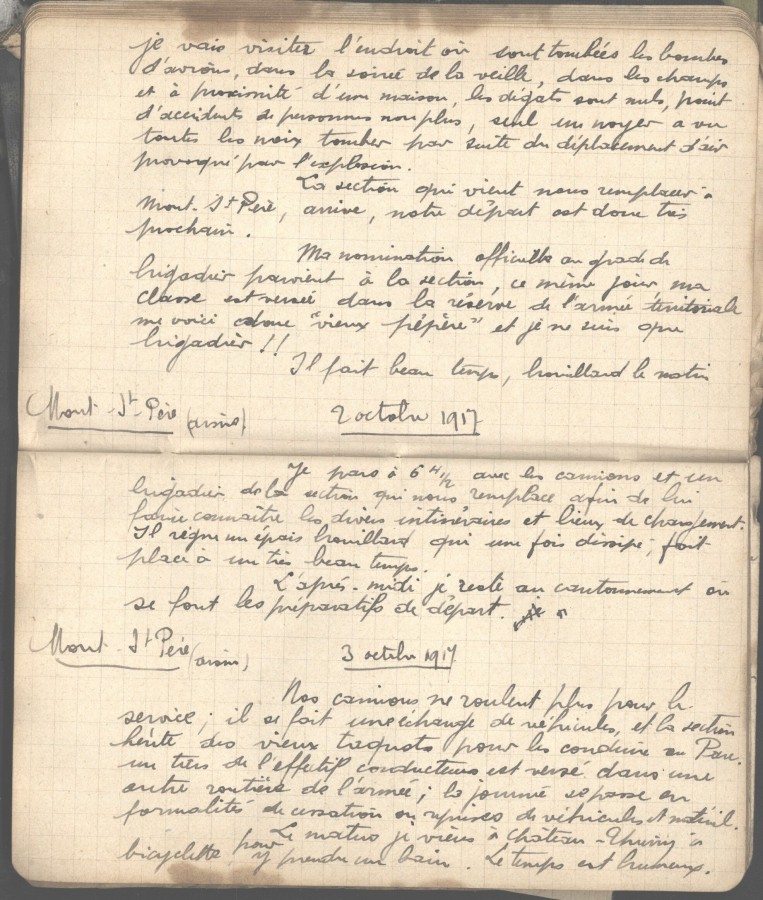 je vais visiter l'endroit où sont tombées les bombes
d'avions, dans la soirée de la veille, dans les champs
et à proximité d'une maison, les dégats sont nuls, point
d'accidents de personnes non plus, seul un noyer a vu
toutes les noix tomber par suite du déplacement d'air
provoqué par l'explosion.
La section qui vient nous remplacer à
Mont-St Père, arrive, notre départ est donc très
prochain.
Ma nomination officielle au grade de
brigadier parvient à la section, ce même jour, ma
classe est versée dans la réserve de l'armée territoriale
me voici donc "vieux pépère" et je ne suis que
brigadier !!
Il fait beau temps, brouillard le matin
Mont-St-Père (aisne) 2 octobre 1917
Je pars à 6 H 1/2 avec les camions et un
brigadier de la section qui nous remplace afin de lui
faire connaître les divers intinéraires et lieux de chargement.
Il règne un épais brouillard qui une fois dissipé, fait
place à un très beau temps.
L'après-midi je reste au cantonnement où
se font les préparatifs de départ.
Mont-St Père (aisne) 3 octobre 1917
Nos camions ne roulent plus pour le
service; il se fait une échange de véhicules, et la section
hérite des vieux taquots pour les conduire au Parc.
un tiers de l'effectif conducteurs est versé dans une
autre routière de l'armée; la journée se passe en
formalités de cessation ou reprises de véhicules et matériel.
Le matin je viens à château-Thierry à
bicyclette pour y prendre un bain. Le temps est brumeux.